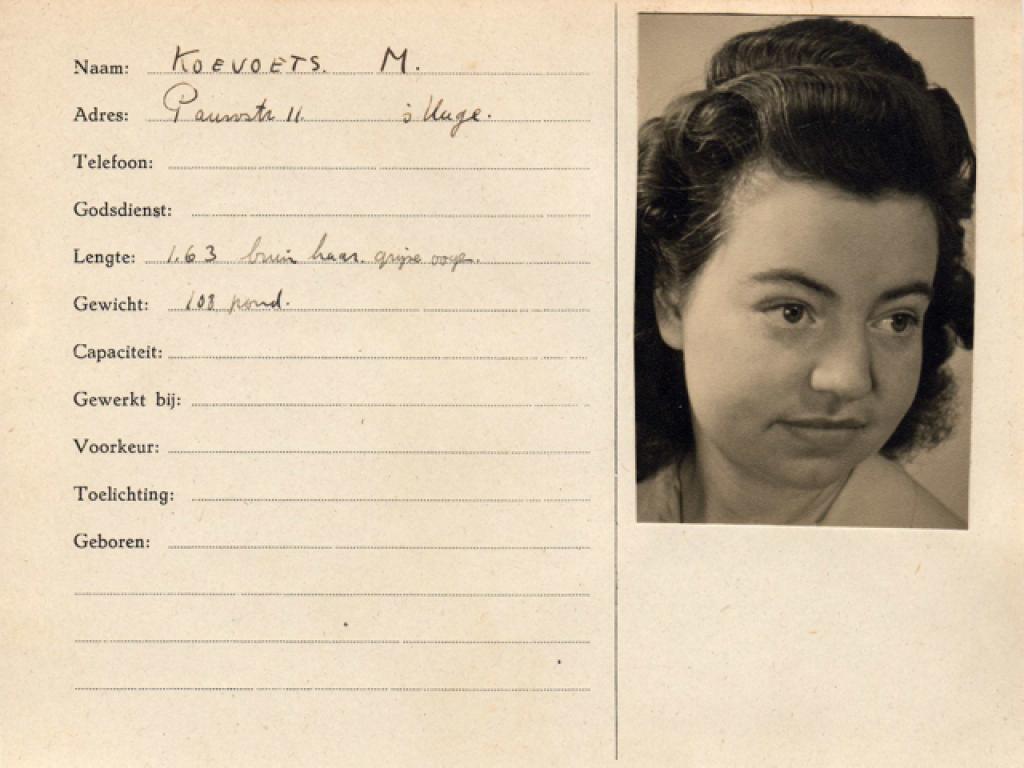 Naam: KOEVOETS. M.
Adres: Pauwstr 11. 's Hage.
Telefoon:
Godsdienst:
Lengte: 1.63 bruin haar. grijze oogen.
Gewicht: 108 pond.
Capaciteit:
Gewerkt bij:
Voorkeur:
Toelichting:
Geboren: